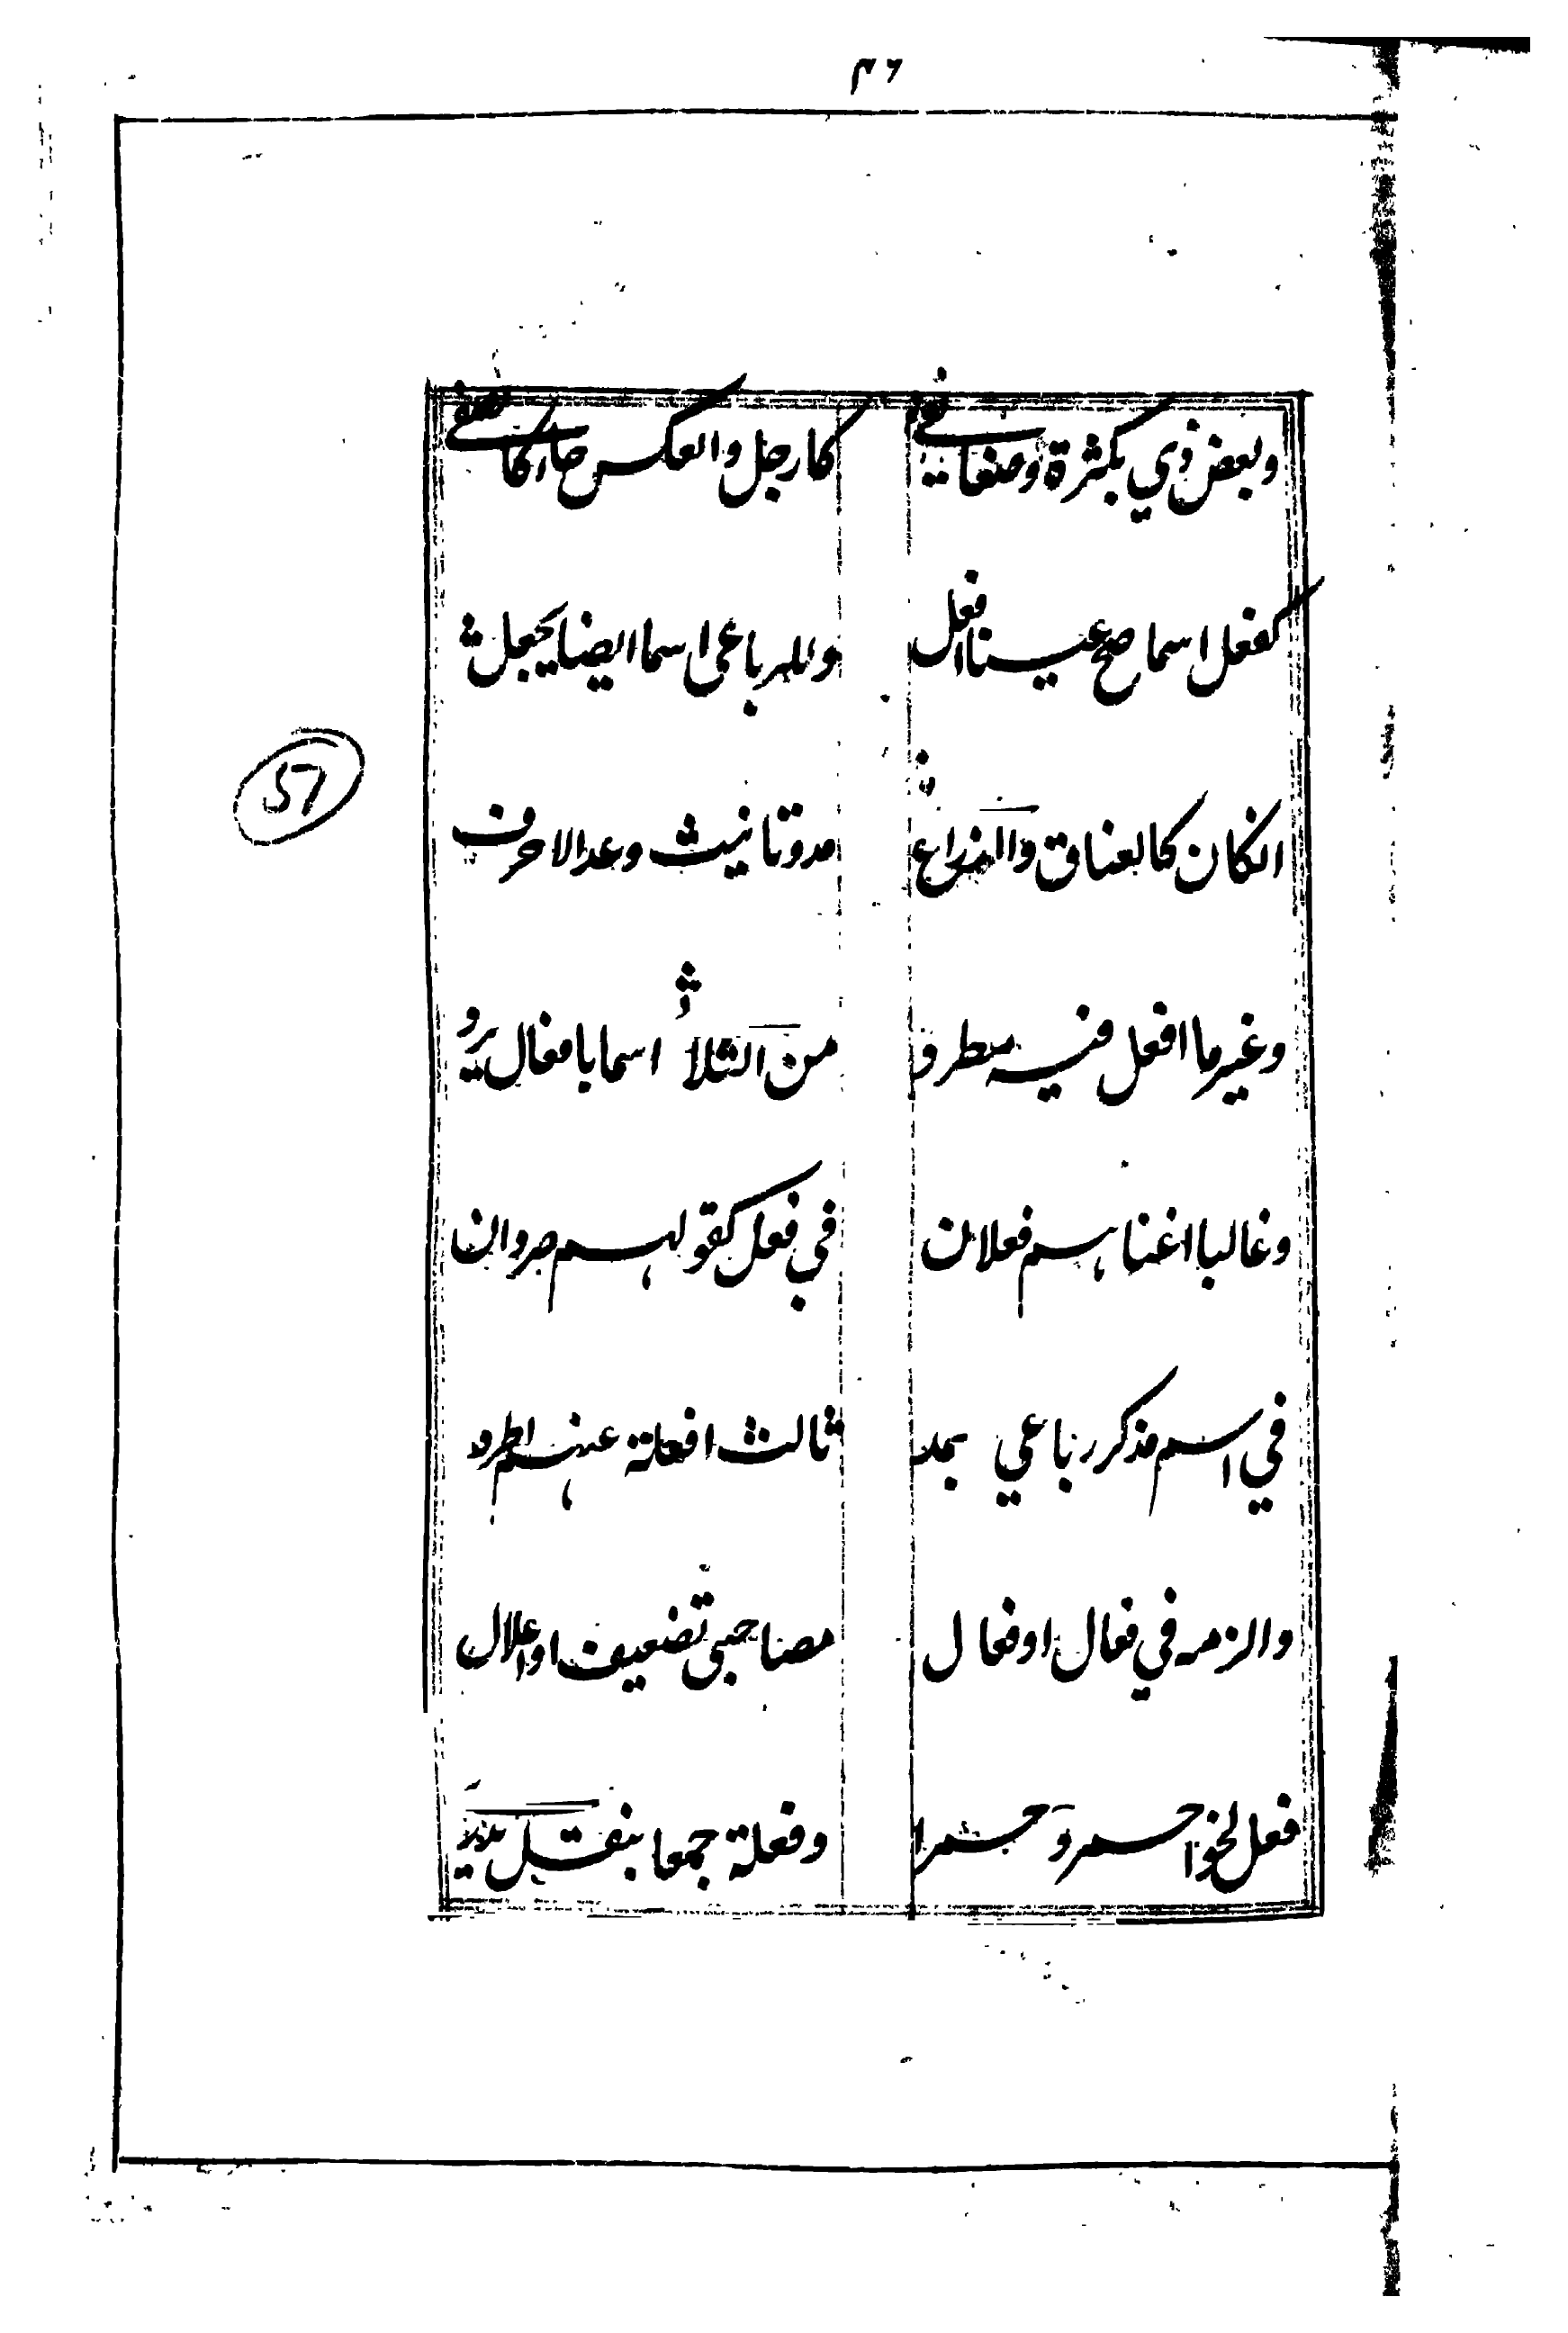 ٤٦
وبعض ذي بكثرة وضعا يفي كارجل والعكس جا كالصفي
كفعل اسما صح عينا افعل وللرباعي اسما ايضا يجعل
ان كان كالعناق والذراع في مد وتانيث وعد الاحرف
وغير ما افعل فيه مطرد من الثلاثي اسما بافعال يرد
وغالبا اغناهم فعلان في فعل كقولهم صردان
في اسم مذكر رباعي بمد ثالث افعلة عنهم اطرد
والزمه في فعال او فعال مصاحبي تضعيف او اعلال
فعل لنحو احمر وحمرا وفعلة جمعا بنقل يدرى
57